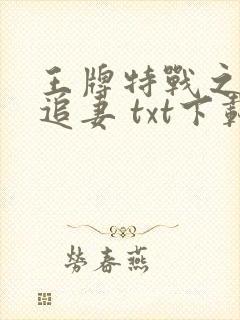 王牌特戰之
追妻 txt下載
勞春燕